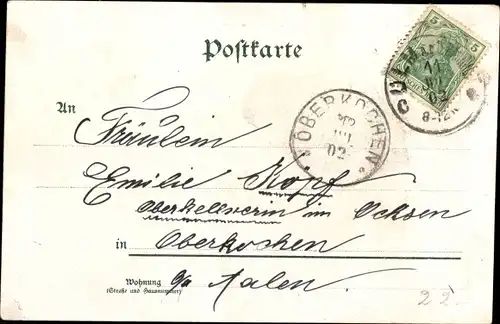 Postkarte
5
8-12V
OBERKOCHEN
02
An
Fräulein
Emilie Kopf
Oberkellnerin im Ochsen
in Oberkochen
Wohnung
(Straße und Hausnummer)
Aalen.
22.